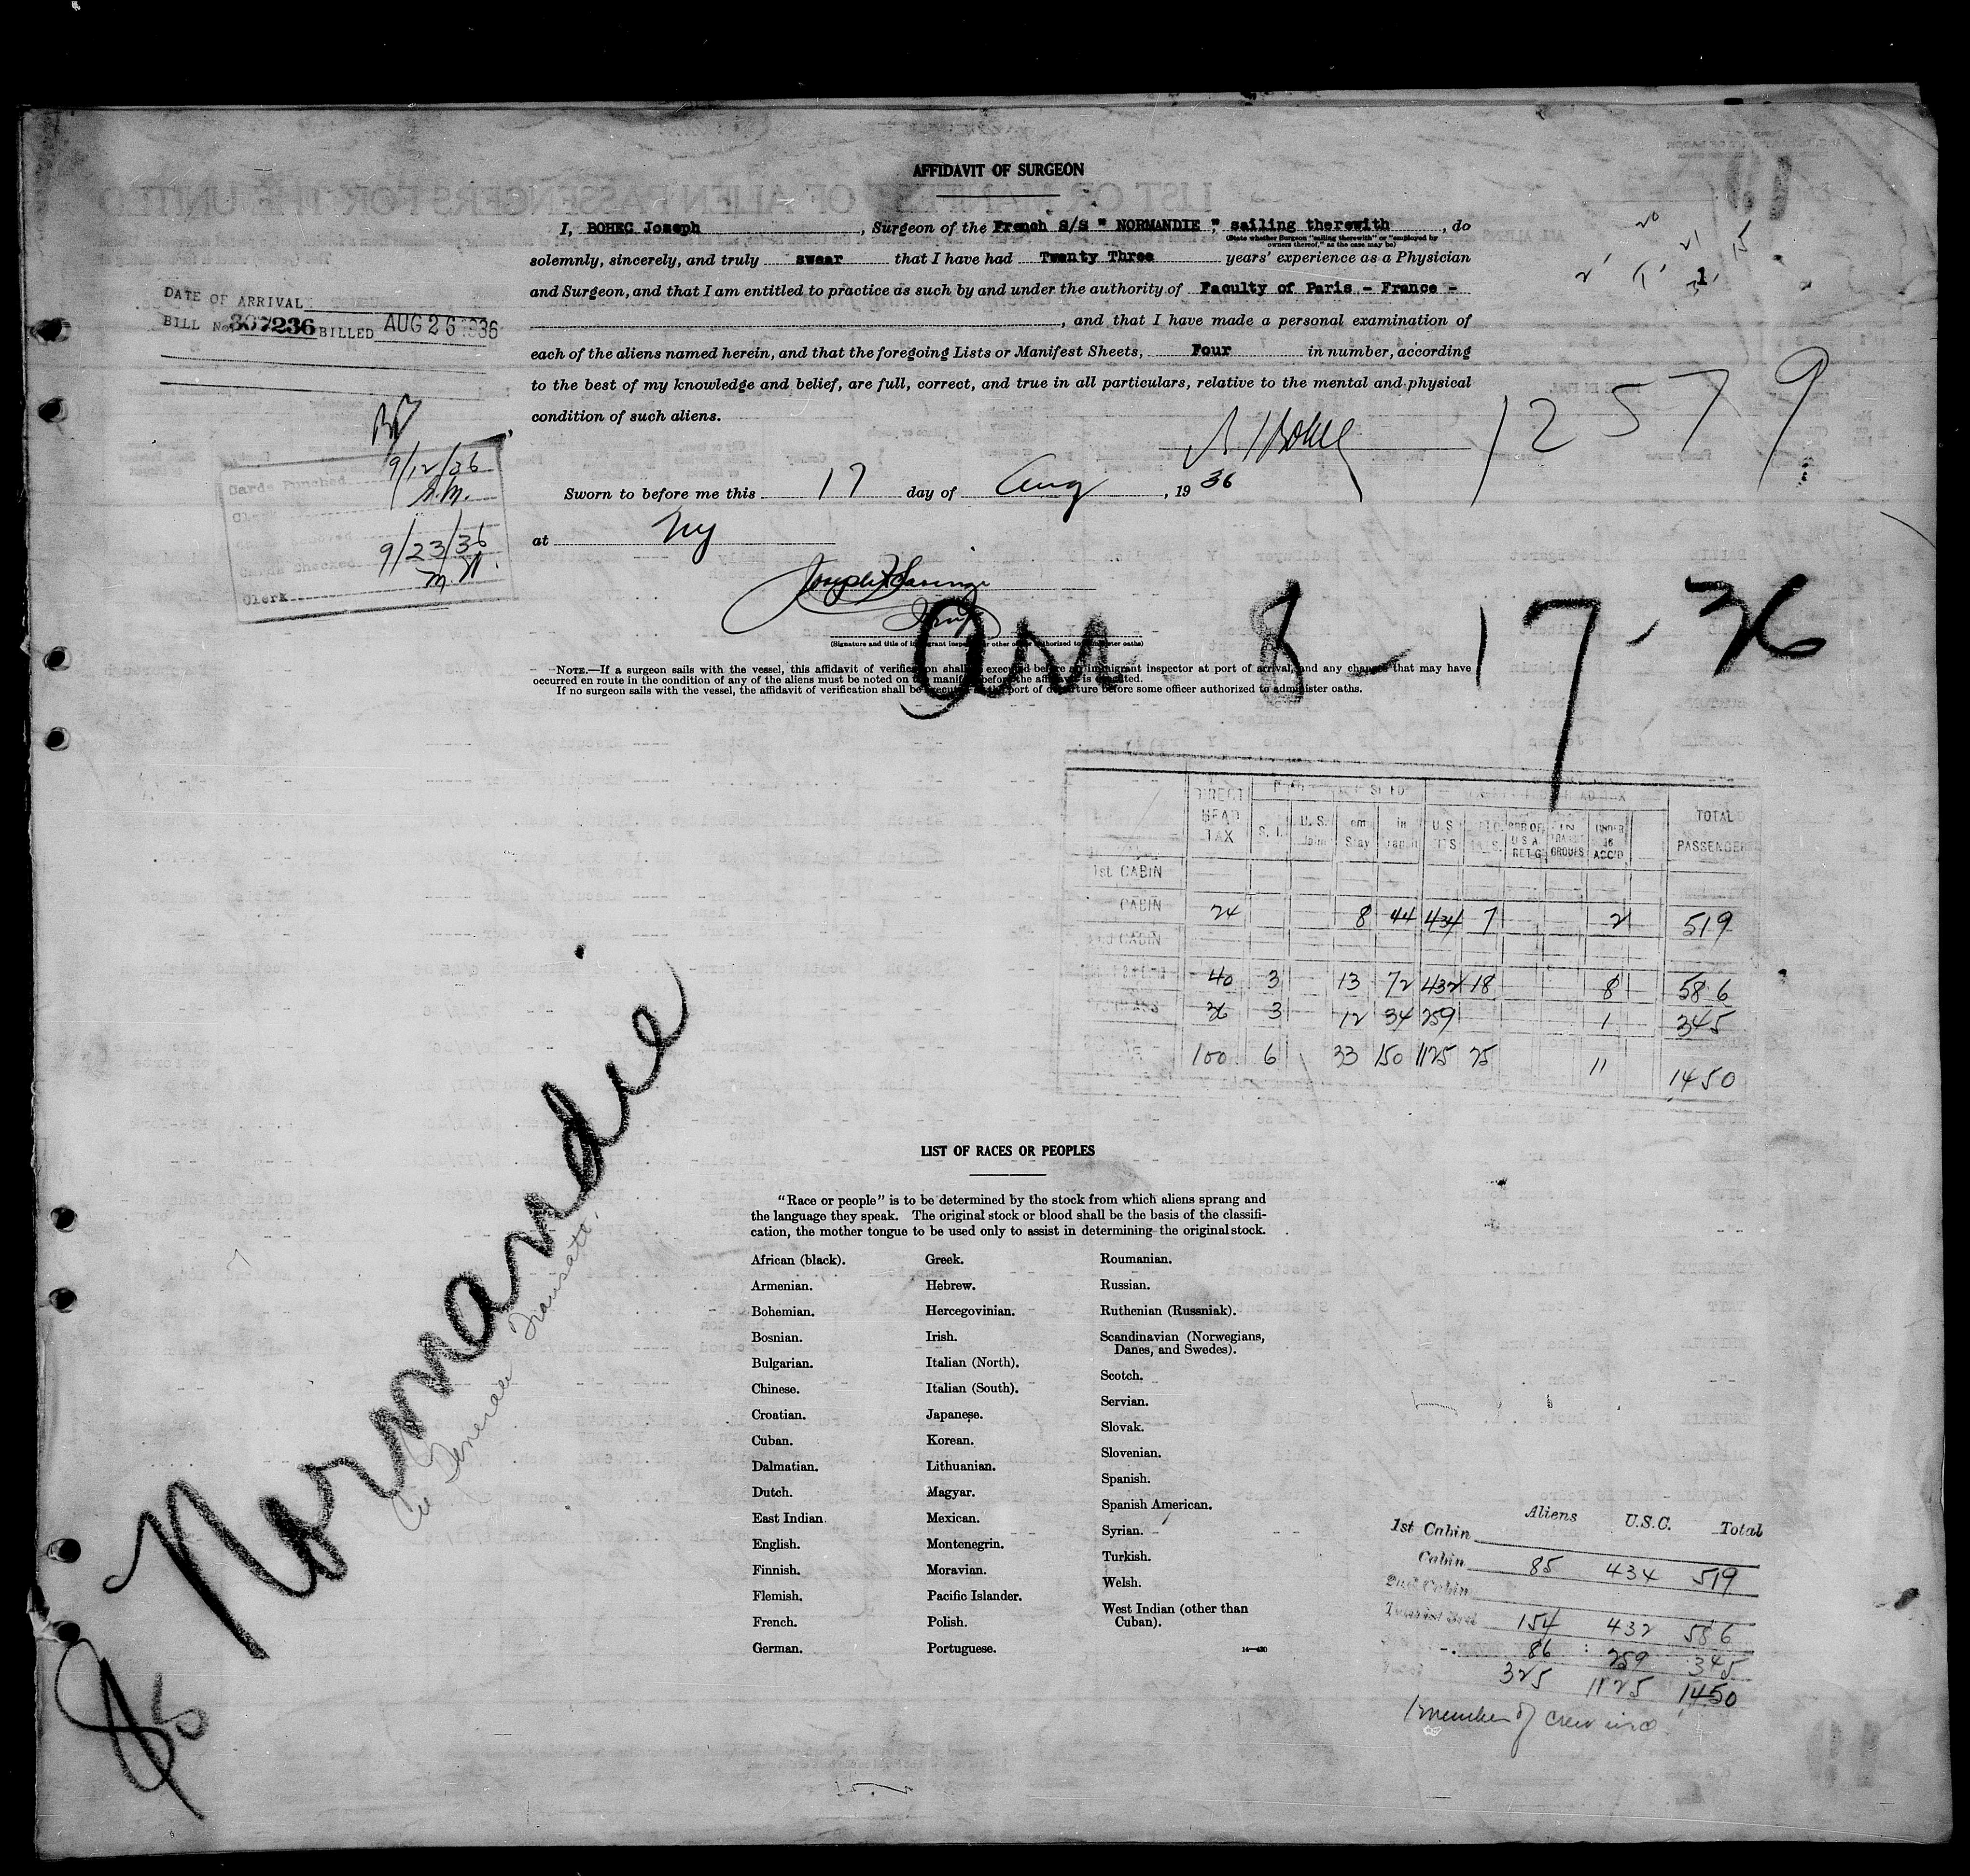 AFFIDAVIT OF SURGEON
I, BOHEC Joseph, Surgeon of the French S/S " NORMANDIE " sailing therewith, do
(State whether Surgeon "sailing therewith" or "employed by
owners thereof," as the case may be)
solemnly, sincerely, and truly swear that I have had Twenty Three years' experience as a Physician
and Surgeon, and that I am entitled to practice as such by and under the authority of Faculty of Paris - France -
, and that I have made a personal examination of
each of the aliens named herein, and that the foregoing Lists or Manifest Sheets, Four in number, according
to the best of my knowledge and belief, are full, correct, and true in all particulars, relative to the mental and physical
condition of such aliens.
DATE OF ARRIVAL
BILL No. 307236 BILLED AUG 26 1936
12579
Cards Punched 9/12/36
Clerk
9/23/36
Cards Checked
Clerk
Sworn to before me this 17 day of Aug, 19 36
at NY
(Signature and title of immigrant inspector or other officer authorized to administer oaths)
NOTE.—If a surgeon sails with the vessel, this affidavit of verification shall be executed before an immigrant inspector at port of arrival, and any changes that may have
occurred en route in the condition of any of the aliens must be noted on the manifest before the affidavit is executed.
If no surgeon sails with the vessel, the affidavit of verification shall be executed at the port of departure before some officer authorized to administer oaths.
8-17-36
DIRECT HEAD TAX S. I. U. S. U S TOTAL PASSENGER
UNDER 16 ACC'D
1st CABIN
CABIN 24 8 44 434 7 2 519
CABIN
40 3 13 72 432 18 8 586
36 3 12 34 259 1 345
100 6 33 150 1125 25 11 1450
Normandie
LIST OF RACES OR PEOPLES
"Race or people" is to be determined by the stock from which aliens sprang and
the language they speak. The original stock or blood shall be the basis of the classifi-
cation, the mother tongue to be used only to assist in determining the original stock.
African (black).
Armenian.
Bohemian.
Bosnian.
Bulgarian.
Chinese.
Croatian.
Cuban.
Dalmatian.
Dutch.
East Indian.
English.
Finnish.
Flemish.
French.
German.
Greek.
Hebrew.
Hercegovinian.
Irish.
Italian (North).
Italian (South).
Japanese.
Korean.
Lithuanian.
Magyar.
Mexican.
Montenegrin.
Moravian.
Pacific Islander.
Polish.
Portuguese.
Roumanian.
Russian.
Ruthenian (Russniak).
Scandinavian (Norwegians,
Danes, and Swedes).
Scotch.
Servian.
Slovak.
Slovenian.
Spanish.
Spanish American.
Syrian.
Turkish.
Welsh.
West Indian (other than
Cuban).
Aliens U.S.C. Total
1st Cabin
Cabin 85 434 519
2nd Cabin
154 432 586
86 259 345
325 1125 1450
1 member of crew incl